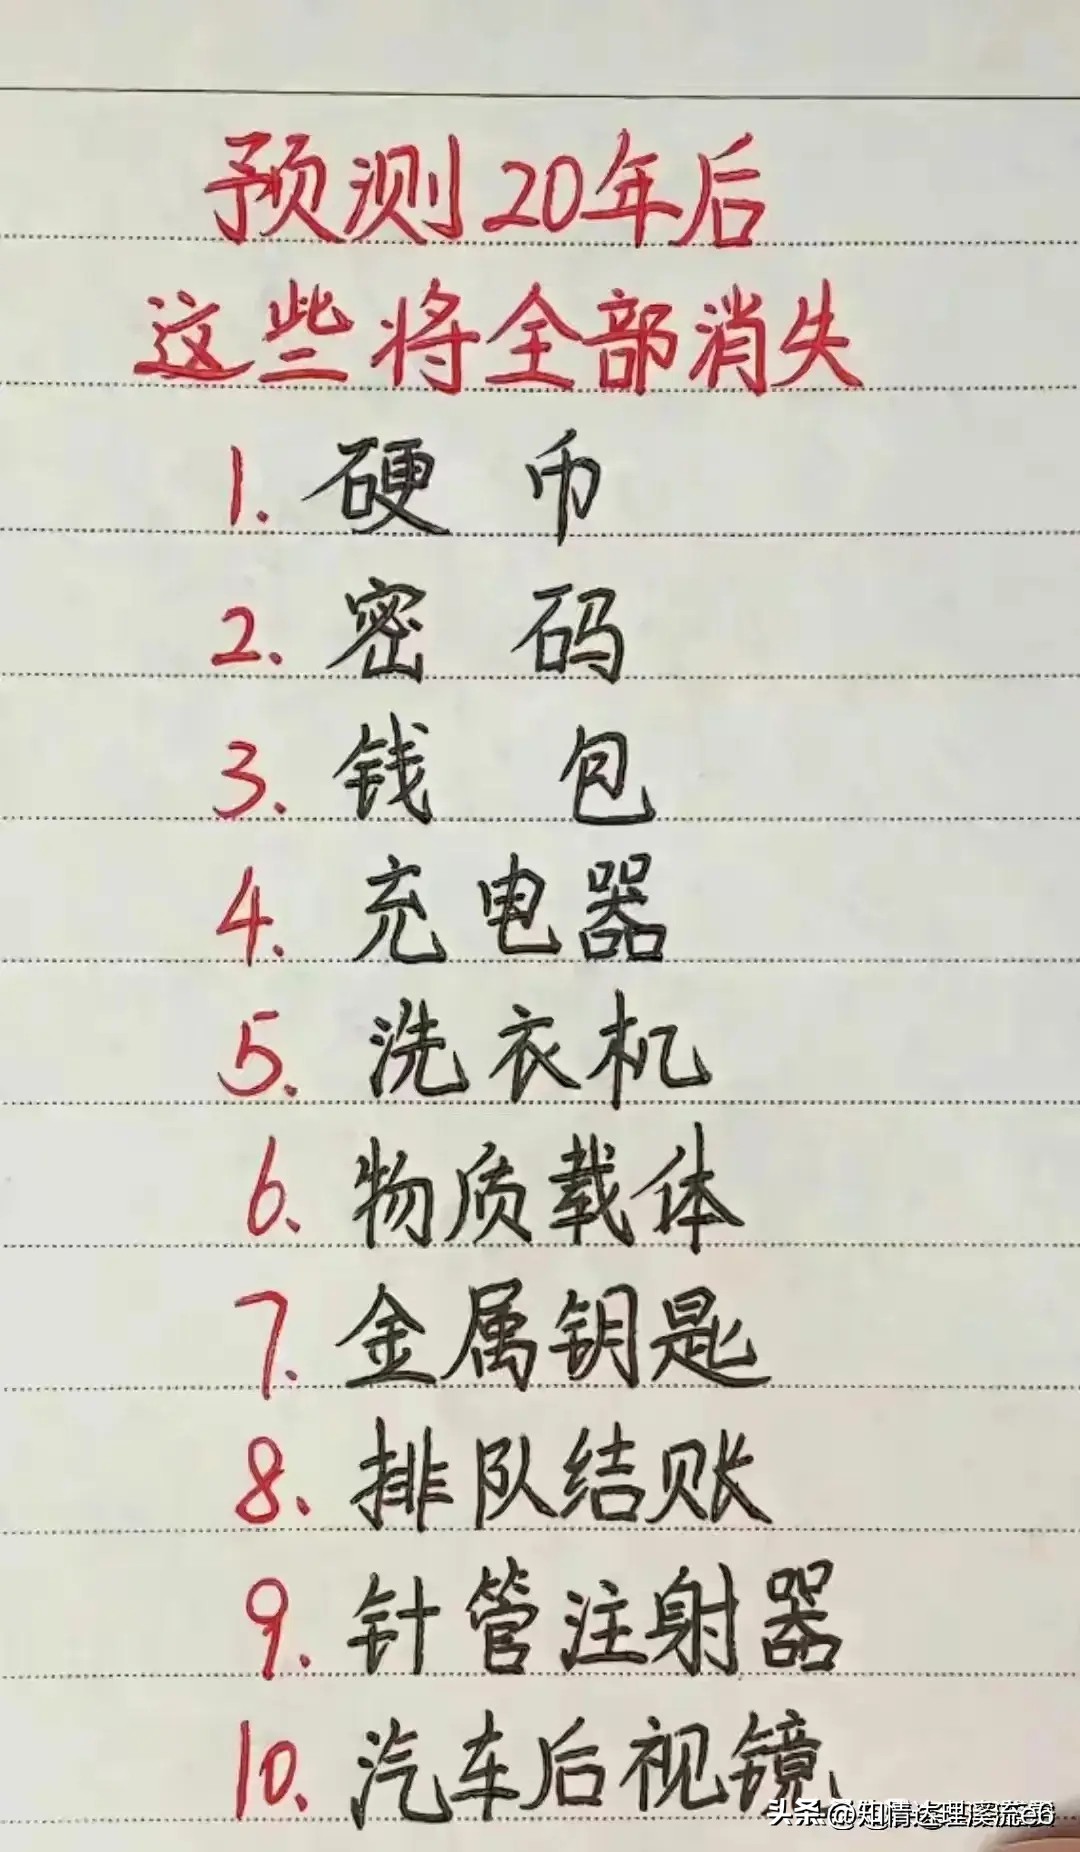 预测20年后
这些将全部消失
1. 硬币
2. 密码
3. 钱包
4. 充电器
5. 洗衣机
6. 物质载体
7. 金属钥匙
8. 排队结账
9. 针管注射器
10. 汽车后视镜
头条 @知情达理溪流e6